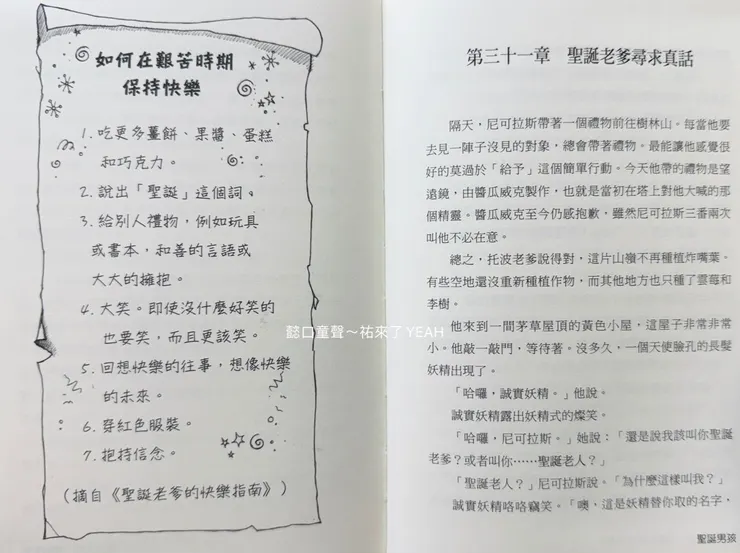 如何在艱苦時期
保持快樂
1. 吃更多薑餅、果醬、蛋糕
和巧克力。
2. 說出「聖誕」這個詞。
3. 給別人禮物,例如玩具
或書本,和善的言語或
大大的擁抱。
4. 大笑。即使沒什麼好笑的
也要笑,而且更該笑。
5. 回想快樂的往事,想像快樂
的未來。
6. 穿紅色服裝。
7. 抱持信念。
(摘自《聖誕老爹的快樂指南》)
懿口童聲～祐來了 YEAH
第三十一章 聖誕老爹尋求真話
隔天,尼可拉斯帶著一個禮物前往樹林山。每當他要
去見一陣子沒見的對象,總會帶著禮物。最能讓他感覺很
好的莫過於「給予」這個簡單行動。今天他帶的禮物是望
遠鏡,由醬瓜威克製作,也就是當初在塔上對他大喊的那
個精靈。醬瓜威克至今仍感抱歉,雖然尼可拉斯三番兩次
叫他不必在意。
總之,托波老爹說得對,這片山嶺不再種植炸嘴葉。
有些空地還沒重新種植作物,而其他地方也只種了雲莓和
李樹。
他來到一間茅草屋頂的黃色小屋,這屋子非常非常
小。他敲一敲門,等待著。沒多久,一個天使臉孔的長髮
妖精出現了。
「哈囉,誠實妖精。」他說。
誠實妖精露出妖精式的燦笑。
「哈囉,尼可拉斯。」她說:「還是說我該叫你聖誕
老爹?或者叫你……聖誕老人?」
「聖誕老人?」尼可拉斯說。「為什麼這樣叫我?」
誠實妖精咯咯竊笑。「噢,這是妖精替你取的名字,
聖誕男孩